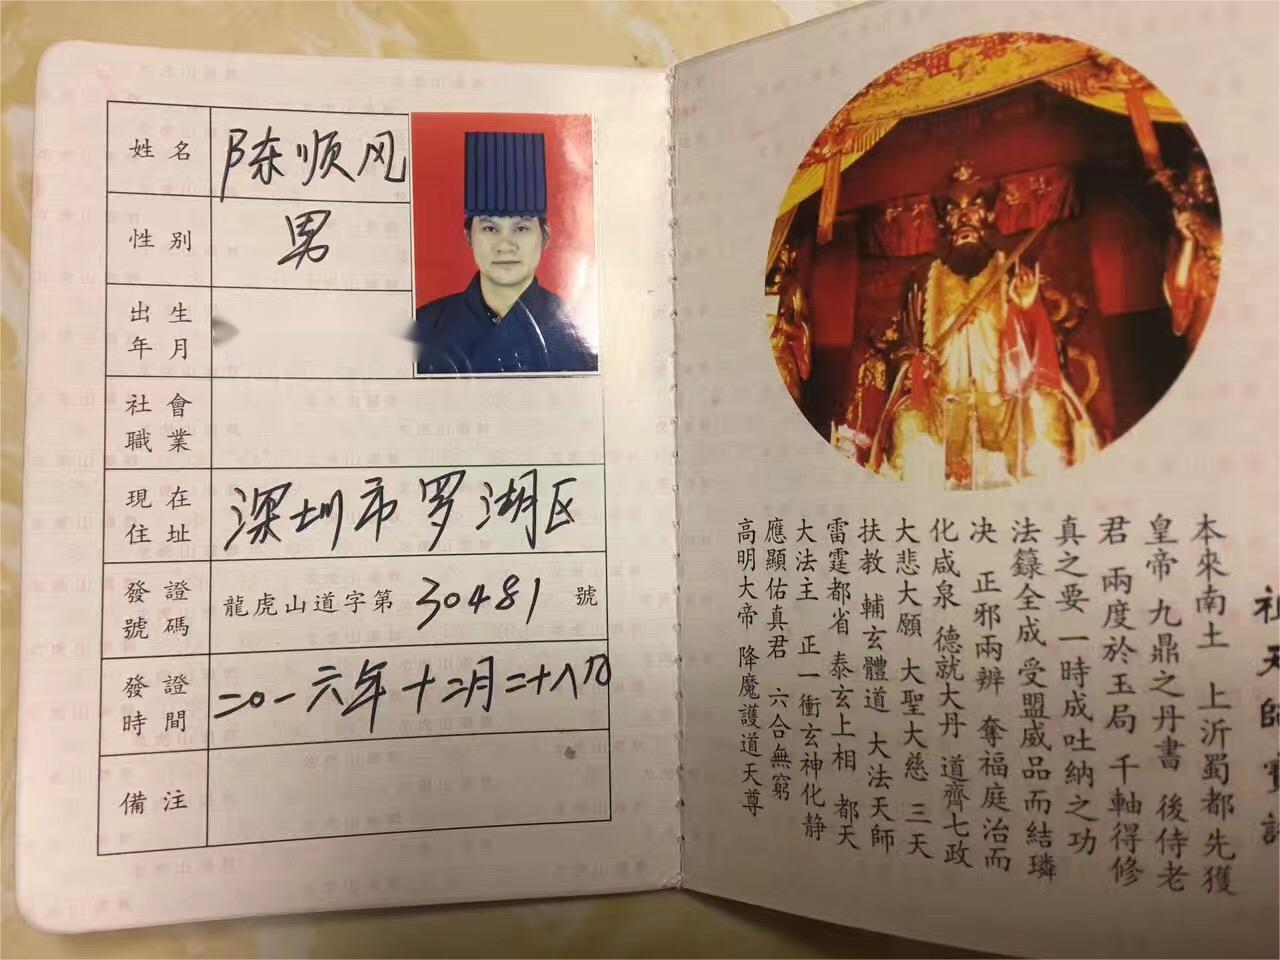 姓名 陈顺风
性别 男
出生年月
社會職業
現在住址 深圳市罗湖区
發證號碼 龍虎山道字第 30481 號
發證時間 二〇一六年十二月二十八日
備注
祖天師寶誥
本來南土 上沂蜀都先獲
皇帝九鼎之丹書 後侍老
君 兩度於玉局 千軸得修
真之要 一時成吐納之功
法籙全成 受盟威品而結璘
决 正邪兩辨 奪福庭治而
化咸泉 德就大丹 道齊七政
大悲大願 大聖大慈 三天
扶教 輔玄體道 大法天師
雷霆都省 泰玄上相 都天
大法主 正一衝玄神化静
應顯佑真君 六合無窮
高明大帝 降魔護道天尊